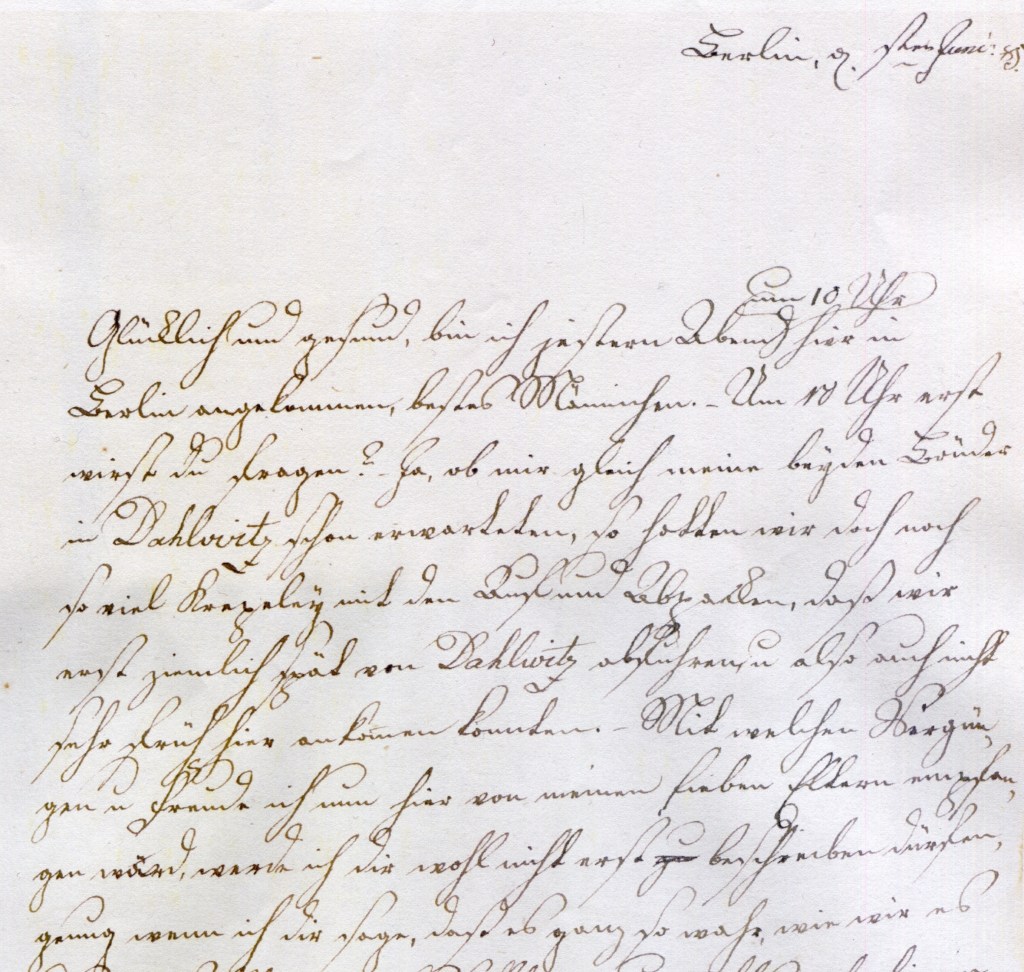 Berlin, d. 5ten Juni:
um 10 Uhr
Glücklich und gesund, bin ich gestern Abend hier in
Berlin angekommen, bestes Männchen. – Um 10 Uhr erst
wirst du fragen? – Ja, ob mir gleich meine beyden Brüder
in Dahlwitz schon erwarteten, so hatten wir doch noch
so viel Krepeley mit den Auf und Abpacken, daß wir
erst ziemlich spät von Dahlwitz abfuhren, u also auch nicht
sehr früh hier ankommen konnten. – Mit welchen Vergnü,
gen u Freude ich nun hier von meinen lieben Eltern empfan,
gen ward, werde ich dir wohl nicht erst beschreiben dürfen,
genug wenn ich dir sage, daß es ganz so wahr, wie wir es